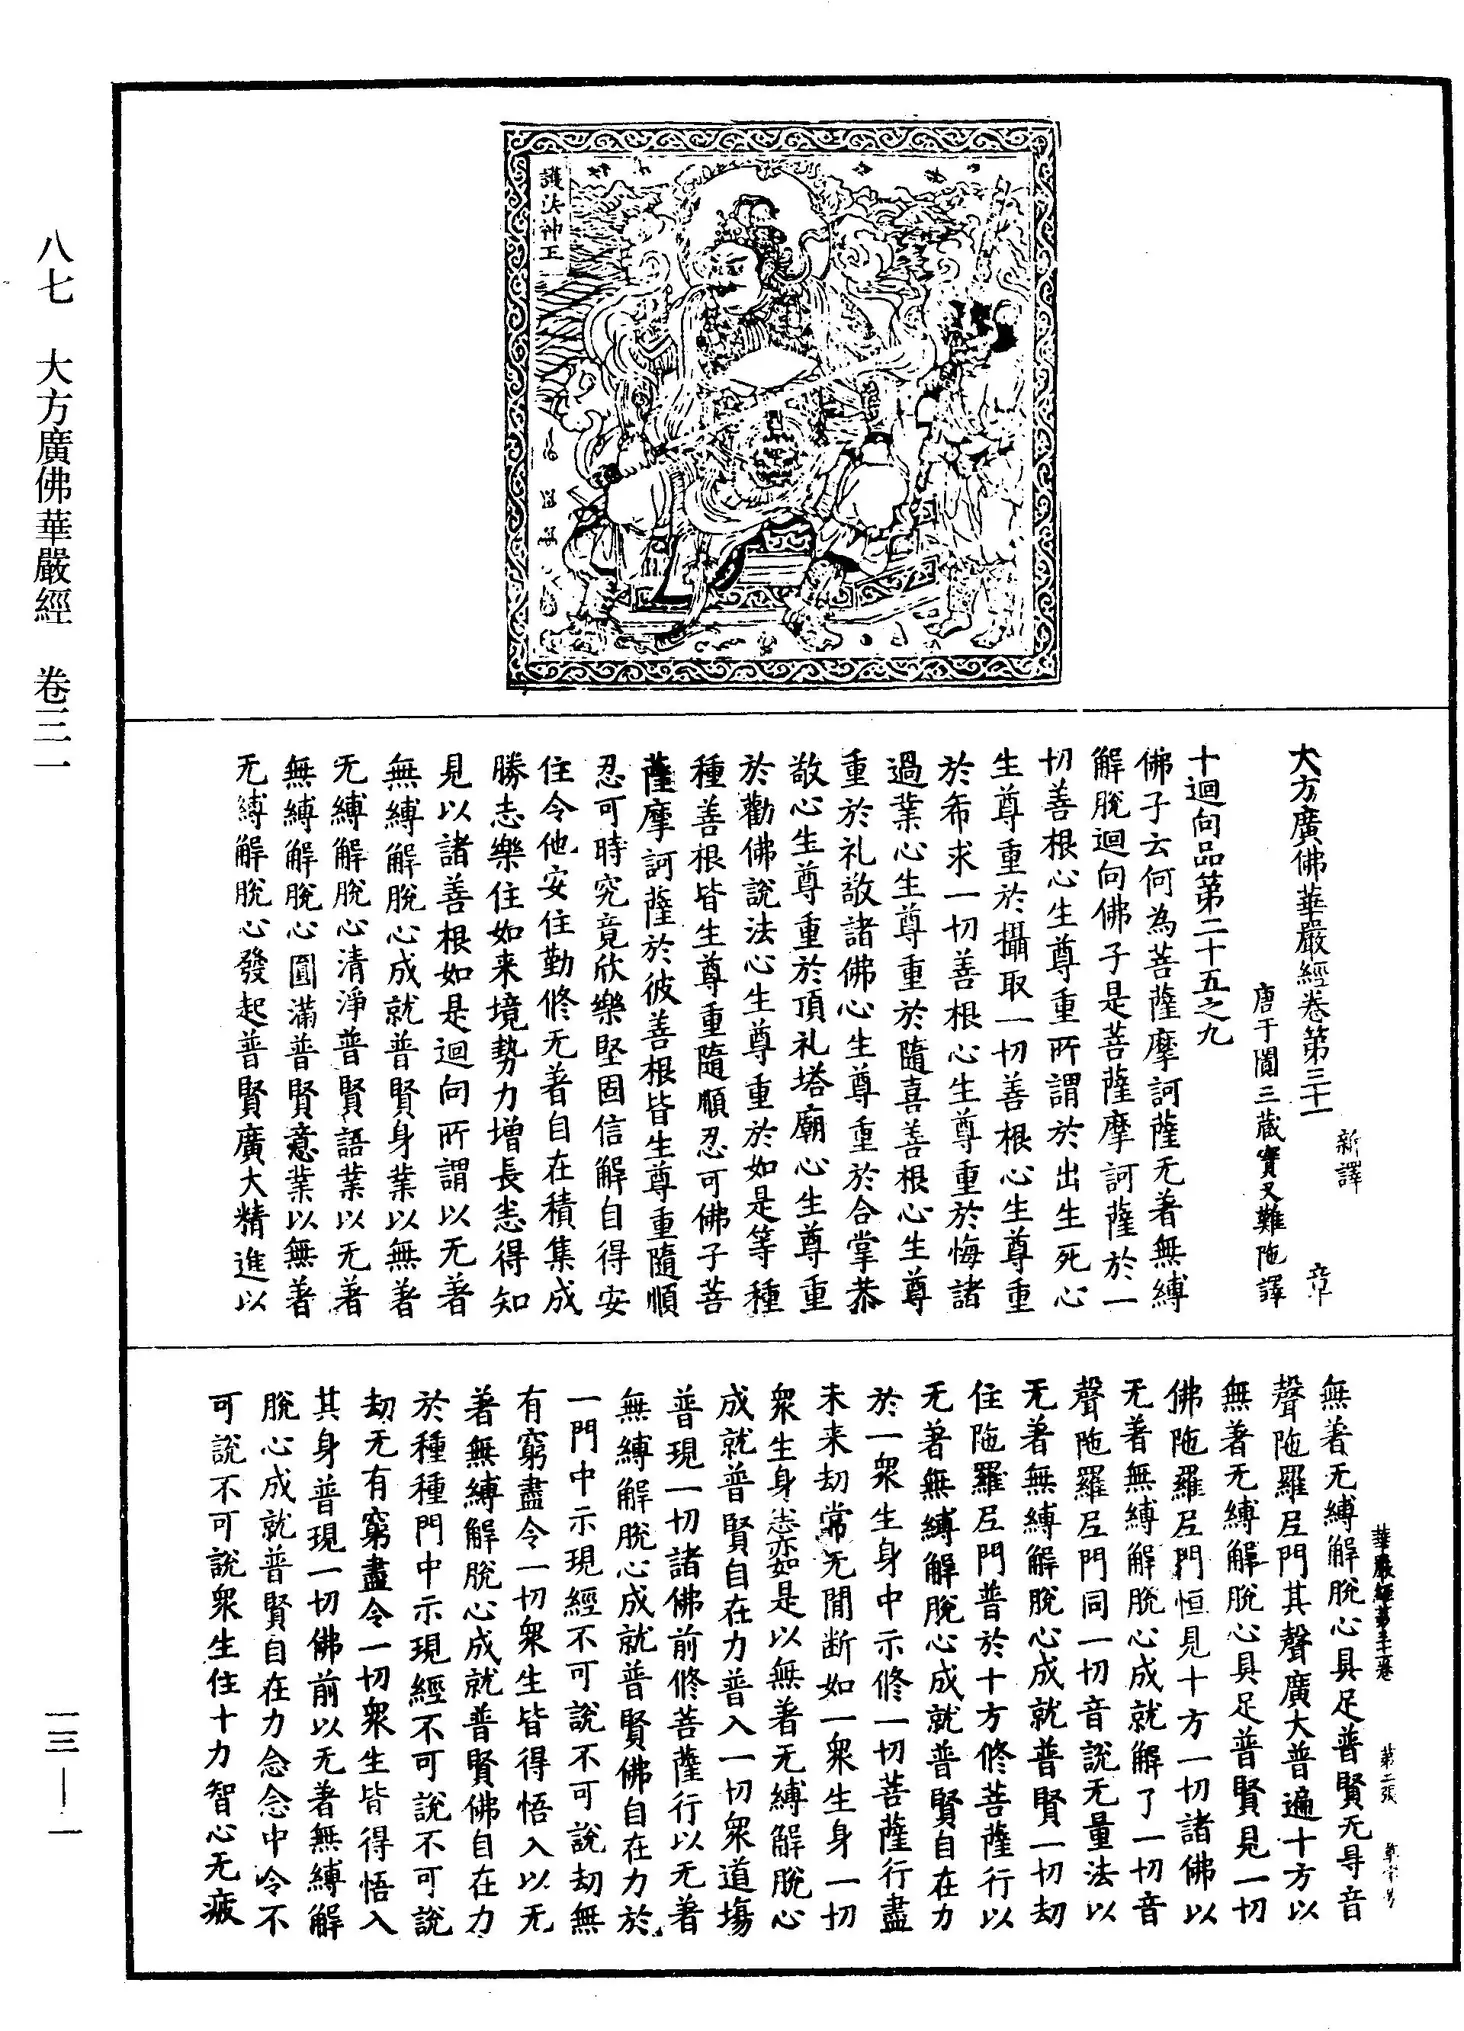 八七　大方廣佛華嚴經　卷三一
一三—一一
護法神王
大方廣佛華嚴經卷第三十一
新譯
章
唐于闐三藏實叉難陁譯
十迴向品第二十五之九
佛子云何為菩薩摩訶薩无著無縛
解脫迴向佛子是菩薩摩訶薩於一
切善根心生尊重所謂於出生死心
生尊重於攝取一切善根心生尊重
於希求一切善根心生尊重於悔諸
過業心生尊重於隨喜善根心生尊
重於礼敬諸佛心生尊重於合掌恭
敬心生尊重於頂礼塔廟心生尊重
於勸佛說法心生尊重於如是等種
種善根皆生尊重隨順忍可佛子菩
薩摩訶薩於彼善根皆生尊重隨順
忍可時究竟欣樂堅固信解自得安
住令他安住勤修无著自在積集成
勝志樂住如来境勢力增長悉得知
見以諸善根如是迴向所謂以无著
無縛解脫心成就普賢身業以無著
无縛解脫心清淨普賢語業以无著
無縛解脫心圓滿普賢意業以無著
无縛解脫心發起普賢廣大精進以
華嚴經第三十一卷　第二張　章字号
無著无縛解脫心具足普賢无㝵音
聲陁羅尼門其聲廣大普遍十方以
無著无縛解脫心具足普賢見一切
佛陁羅尼門恒見十方一切諸佛以
无著無縛解脫心成就解了一切音
聲陁羅尼門同一切音說无量法以
无著無縛解脫心成就普賢一切劫
住陁羅尼門普於十方修菩薩行以
无著無縛解脫心成就普賢自在力
於一衆生身中示修一切菩薩行盡
未来劫常无閒断如一衆生身一切
衆生身悉亦如是以無著无縛解脫心
成就普賢自在力普入一切衆道場
普現一切諸佛前修菩薩行以无著
無縛解脫心成就普賢佛自在力於
一門中示現經不可說不可說劫無
有窮盡令一切衆生皆得悟入以无
著無縛解脫心成就普賢佛自在力
於種種門中示現經不可說不可說
劫无有窮盡令一切衆生皆得悟入
其身普現一切佛前以无著無縛解
脫心成就普賢自在力念念中令不
可說不可說衆生住十力智心无疲